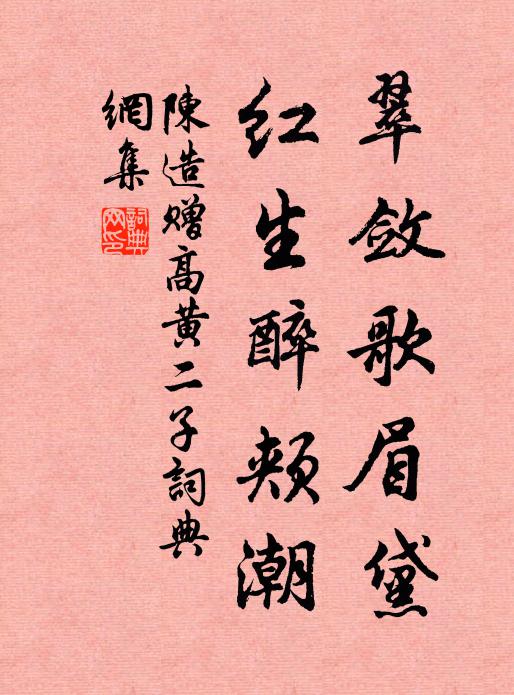 翠斂歌眉黛
红生醉頰潮
陳造贈高黄二子詞典
網集
詞典网印